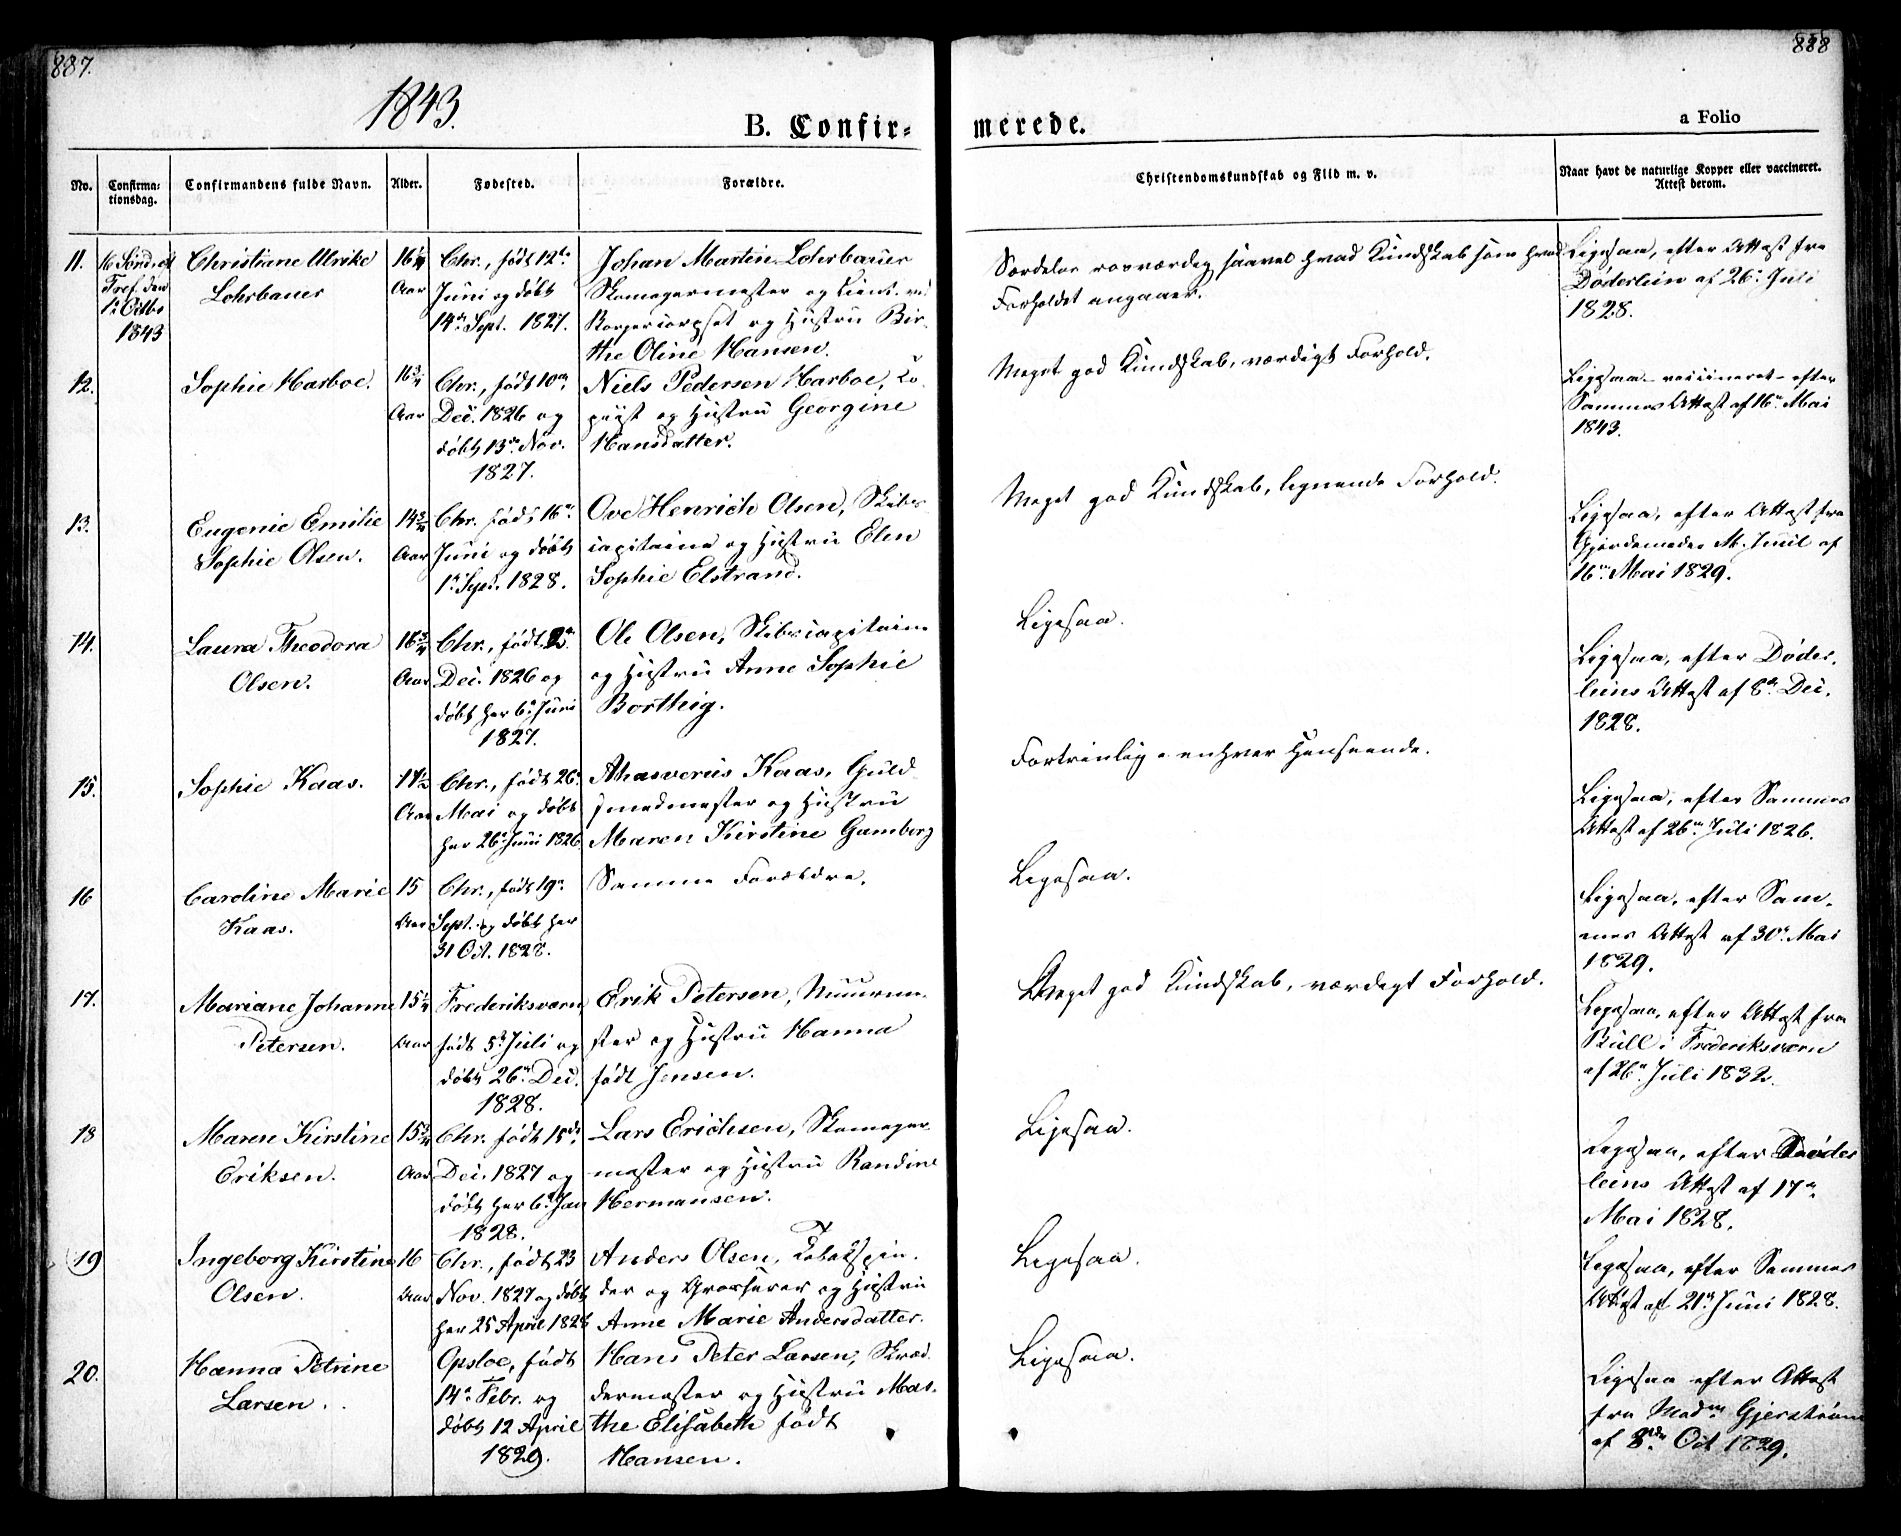 887.
888
1843.
B. Confir-
merede.
a Folio
No.
Confirma-
tionsdag.
Confirmandens fulde Navn.
Alder.
Fødested.
Forældre.
Christendomskundskab og Flid m. v.
Naar havt de naturlige Kopper eller vaccineret.
Attest derom.
11.
16 Sønd. ef
Tref. den
1e Octbr
1843
Christiane Ulrike
Lohrbauer
16¼
Aar
Chr., født 12te
Juni og døbt
14de Sept. 1827.
Johan Martin Lohrbauer
Skomagermester og Lieut. ved
Borgercorpset og Hustru Bir-
the Oline Hansen.
Særdeles rosværdig saavel hvad Kundskab som hvad
Forholdet angaaer.
Ligesaa, efter Attest fra
Døderlein af 26. Juli
1828.
12.
Sophie Harboe.
16¾
Aar
Chr., født 10de
Dec. 1826 og
døbt 13de Nov.
1827.
Niels Pedersen Harboe, Co-
piist og Hustru Georgine
Hansdatter.
Meget god Kundskab, værdigt Forhold.
Ligesaa - vaccineret - efter
Sammes Attest af 16de Mai
1843.
13.
Eugenie Emilie
Sophie Olsen.
14¾
Aar
Chr. født 16de
Juni og døbt
1e Sept. 1828.
Ove Henrich Olsen, Skibs-
capitaine og Hustru Elen
Sophie Elstrand.
Meget god Kundskab, lignende Forhold.
Ligesaa, efter Attest fra
Gjordemoder M. Juul af
16de Mai 1829.
14.
Laura Theodora
Olsen.
16¾
Aar
Chr., født 2den
Dec. 1826 og
døbt her 6e Juni
1827.
Ole Olsen, Skibscapitain
og Hustru Anne Sophie
Borthig.
Ligesaa.
Ligesaa, efter Døder-
leins Attest af 8de Dec.
1828.
15.
Sophie Kaas.
17½
Aar
Chr., født 26e
Mai og døbt
her 26e Juni 1826
Ahasverus Kaas, Guld-
smedmester og Hustru
Maren Kirstine Gamborg
Fortrinlig i enhver Henseende.
Ligesaa, efter Sammes
Attest af 26de Juli 1826.
16
Caroline Marie
Kaas.
15
Aar
Chr., født 19de
Sept. og døbt her
31 Oct. 1828.
Samme Forældre.
Ligesaa.
Ligesaa, efter Sam-
mes Attest af 30e Mai
1829.
17.
Mariane Johanne
Petersen.
15¼
Aar
Frederiksværn
født 5e Juli og
døbt 26de Dec.
1828.
Erik Petersen, Muurme-
ster og Hustru Hanna
født Jensen.
Meget god Kundskab, værdigt Forhold.
Ligesaa, efter Attest fra
Bull i Frederiksværn
af 26e Juli 1832.
18
Maren Kirstine
Eriksen.
15¾
Aar
Chr. født 15de
Dec. 1827 og
døbt her 6e Jan
1828.
Lars Erichsen, Skomager-
mester og Hustru Randine
Hermansen.
Ligesaa.
Ligesaa, efter Døder
leins Attest af 17de
Mai 1828.
19
Ingeborg Kirstine
Olsen.
16
Aar
Chr., født 23
Nov. 1827 og døbt
her 25 April 1828
Anders Olsen, Tobakspin-
der og Grosserer og Hustru
Anne Marie Andersdatter.
Ligesaa.
Ligesaa, efter Sammes
Attest af 21de Juni 1828.
20.
Hanna Petrine
Larsen.
Opsloe, født
14e Febr. og
døbt 12 April
1829.
Hans Peter Larsen, Skræd-
dermester og Hustru Mar-
the Elisabeth født
Hansen.
Ligesaa.
Ligesaa efter Attest
fra Madm Gjerstrøm
af 8de Oct 1829.